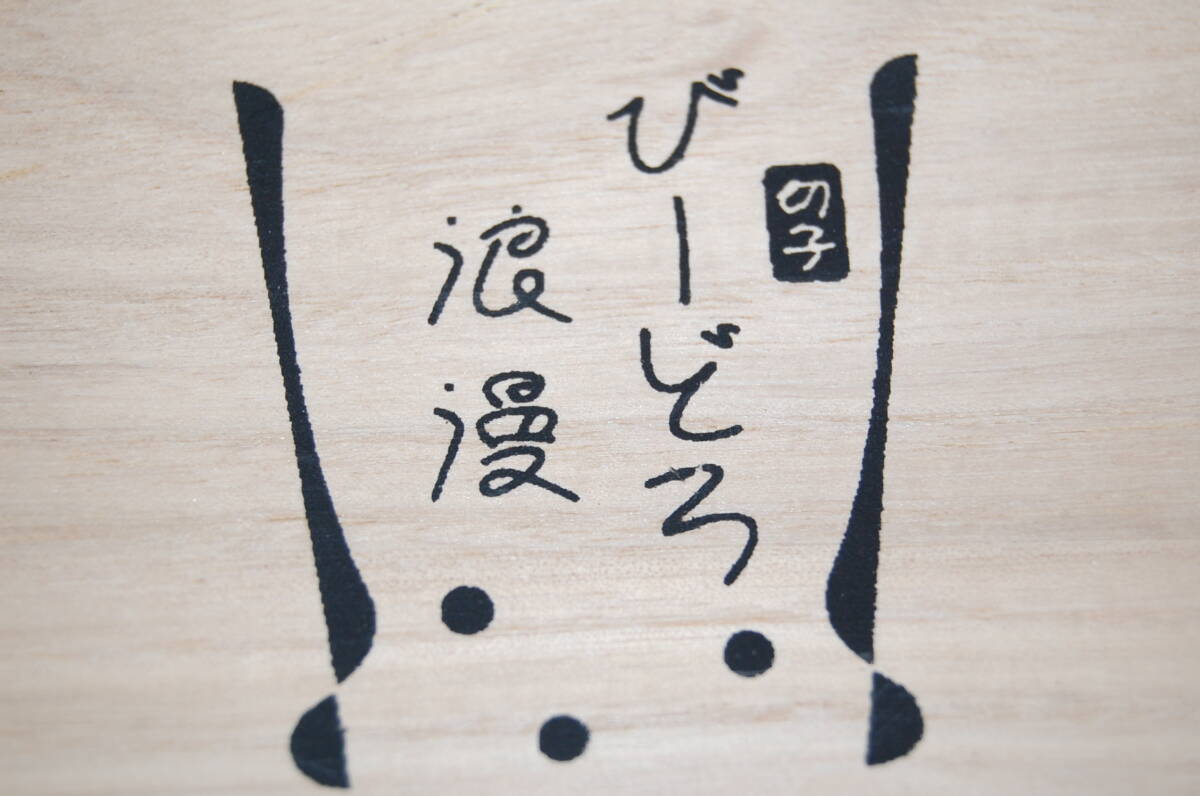 の子
びーどろ
浪漫